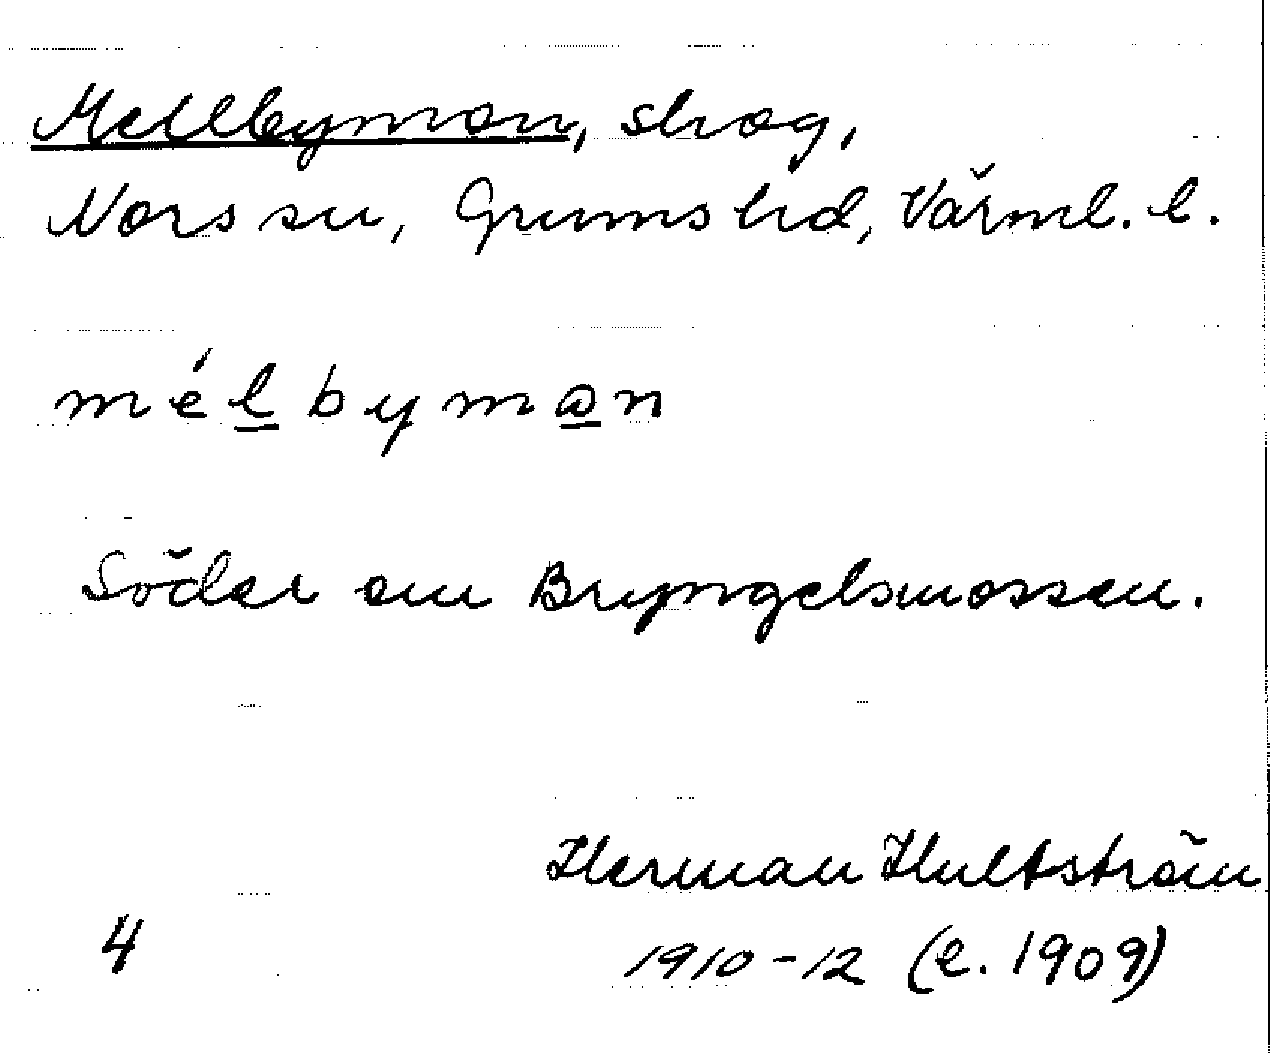 Mellbymon, skog,
Nors sn, Grums hd, Värml. l.
mélbymon
Söder om Bryngelsmossen.
Herman Hultström
4 1910-12 (e. 1909)